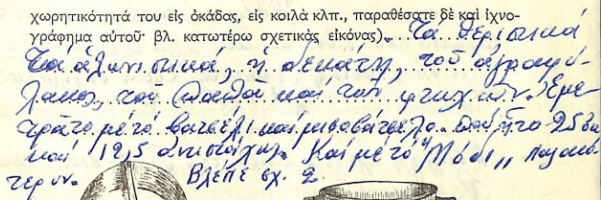 χωρητικότητά του εἰς ὀκάδας, εἰς κοιλὰ κλπ., παραθέσατε δὲ καὶ ἰχνο-
γράφημα αὐτοῦ· βλ. κατωτέρω σχετικὰς εἰκόνας). Τὰ θεριστικά
Τὰ ἁλωνιστικά, ἡ δεκάτη, τοῦ ἀγροφύ-
λακος, τοῦ Παπᾶ καὶ τῶν φτωχῶν. Ἐμε-
τρᾶτο μέ τό βατσέλι καί μισοβάτσελο. πού ἦτο 25
καί 12,5 ἀντιστοίχως. Καί μέ τό "Μόδι,, παλαιό-
τερον. Βλέπε σχ. 2.